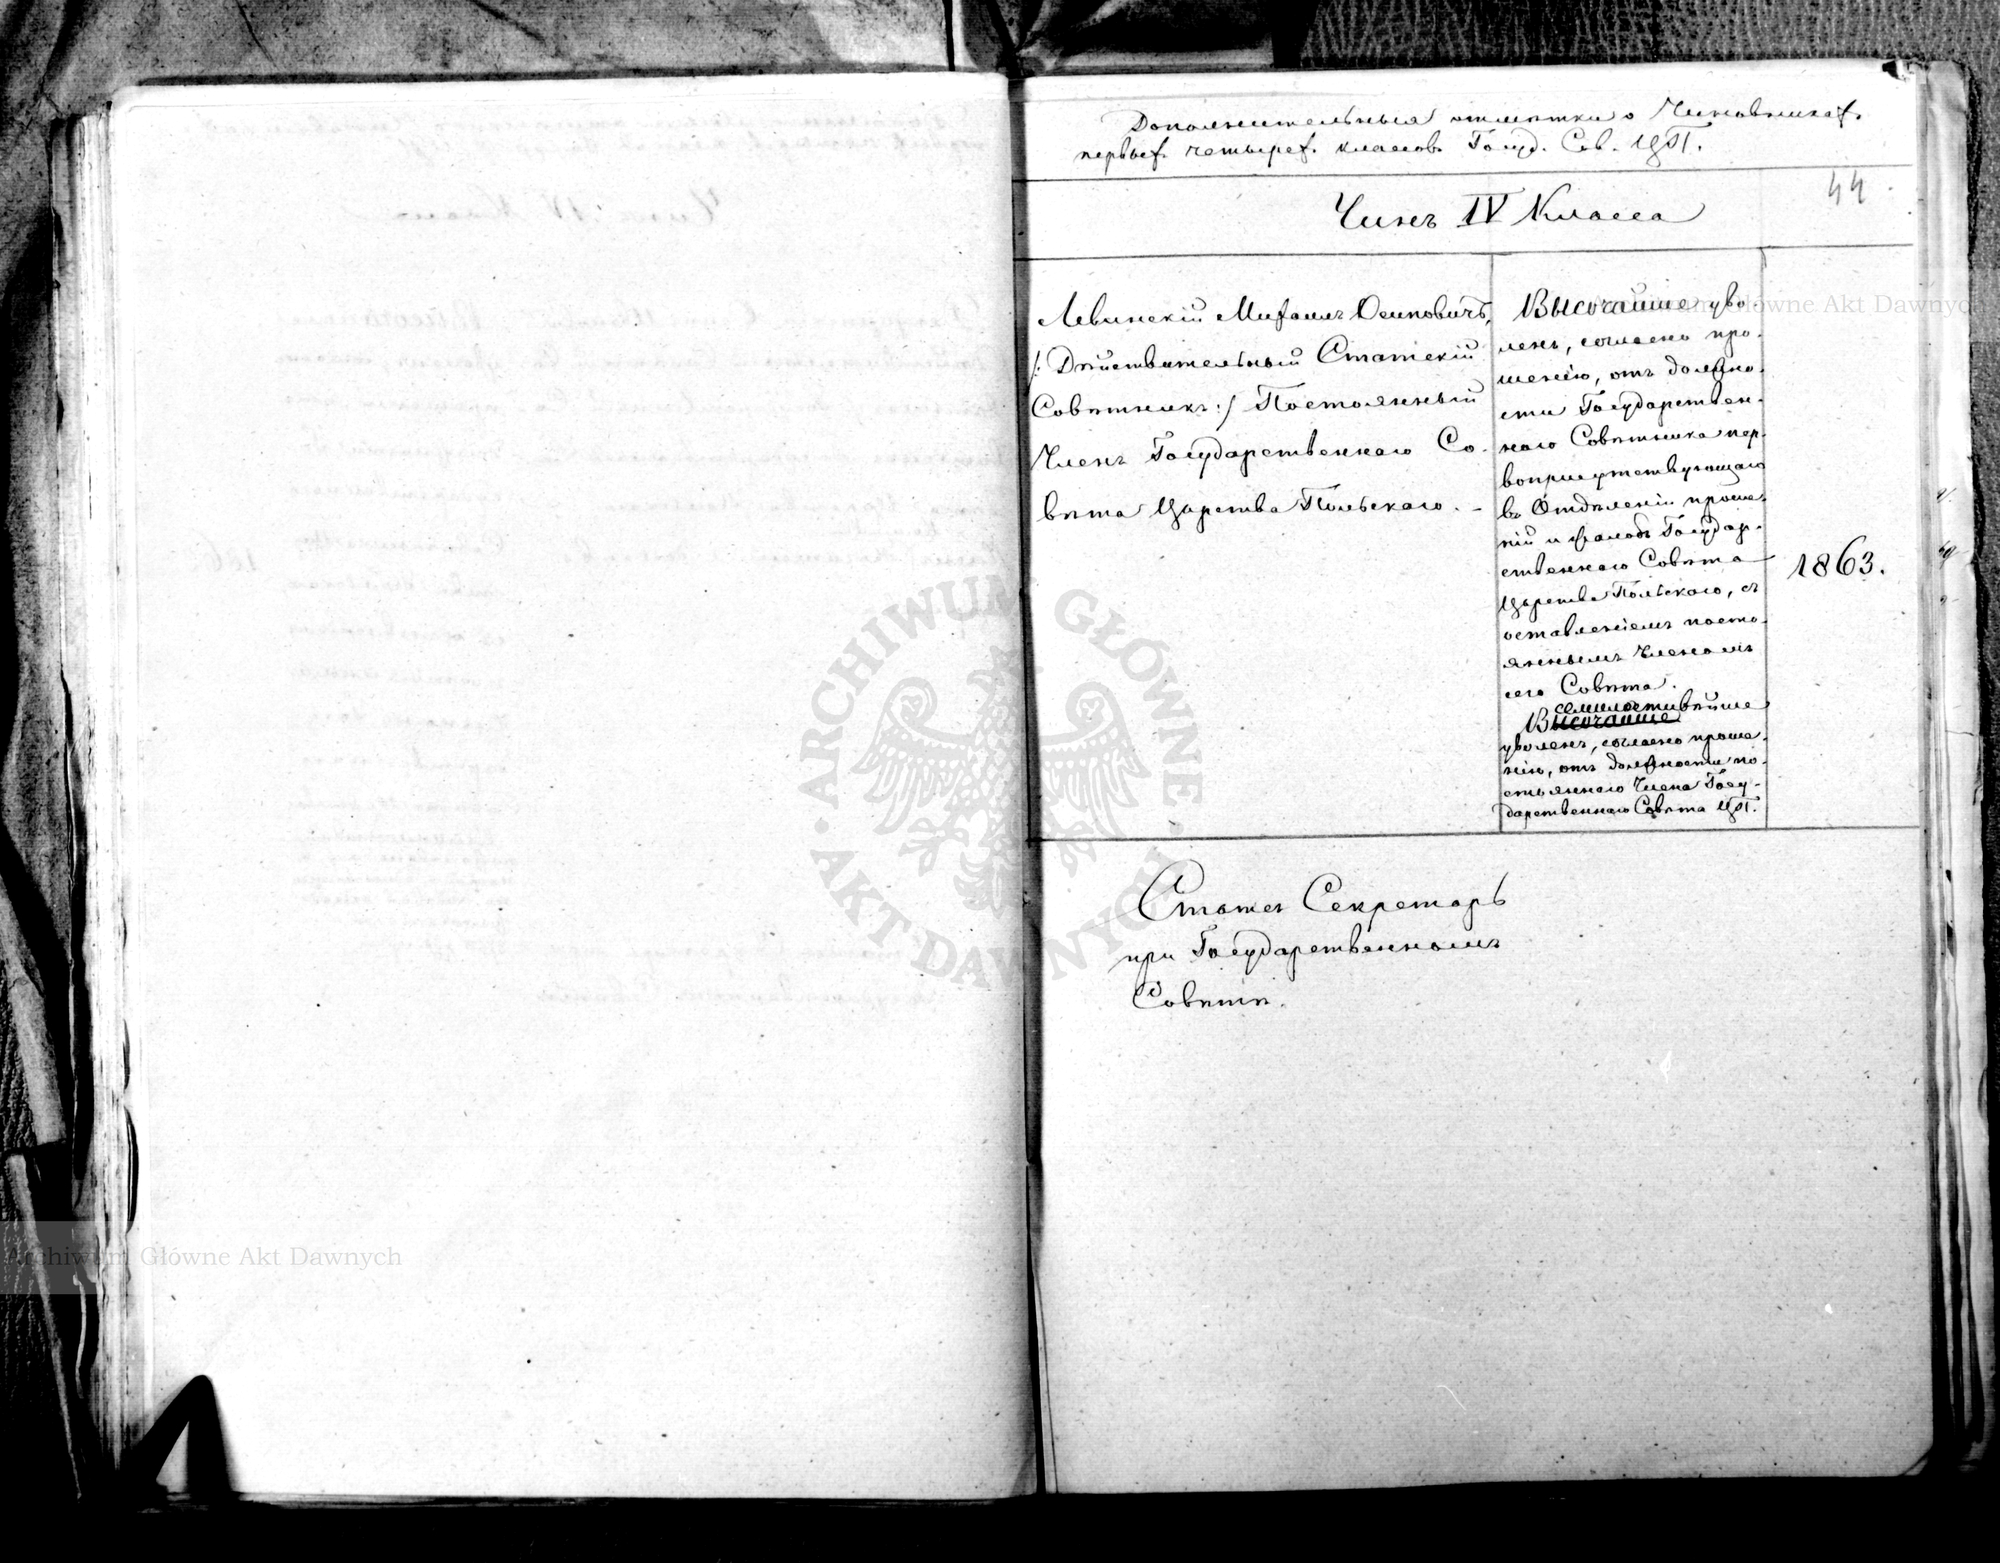 Дополнительныя отмѣтки о Чиновникахъ
первыхъ четырехъ классовъ Госуд. Сов. ЦП.
44
Чинъ IV Класса
Левинскій Михаилъ Осиповичъ,
/: Дѣйствительный Статскій
Совѣтникъ :/ Постоянный
Членъ Государственнаго Со-
вѣта Царства Польскаго. -
Высочайше уво-
ленъ, согласно про-
шенію, отъ должно-
сти Государствен-
наго Совѣтника пер-
воприсутствующаго
въ Отдѣленіи проше-
ній и жалобъ Государ-
ственнаго Совѣта
Царства Польскаго, съ
оставленіемъ посто-
яннымъ Членомъ
сего Совѣта.
семилостивѣйше
Высочайше
уволенъ, согласно проше-
нію, отъ должности по-
стояннаго Члена Госу-
дарственнаго Совѣта ЦП.
1863.
Статсъ Секретарь
при Государственномъ
Совѣтѣ.
ARCHIWUM GŁÓWNE
AKT DAWNYCH
Archiwum Główne Akt Dawnych
Archiwum Główne Akt Dawnych